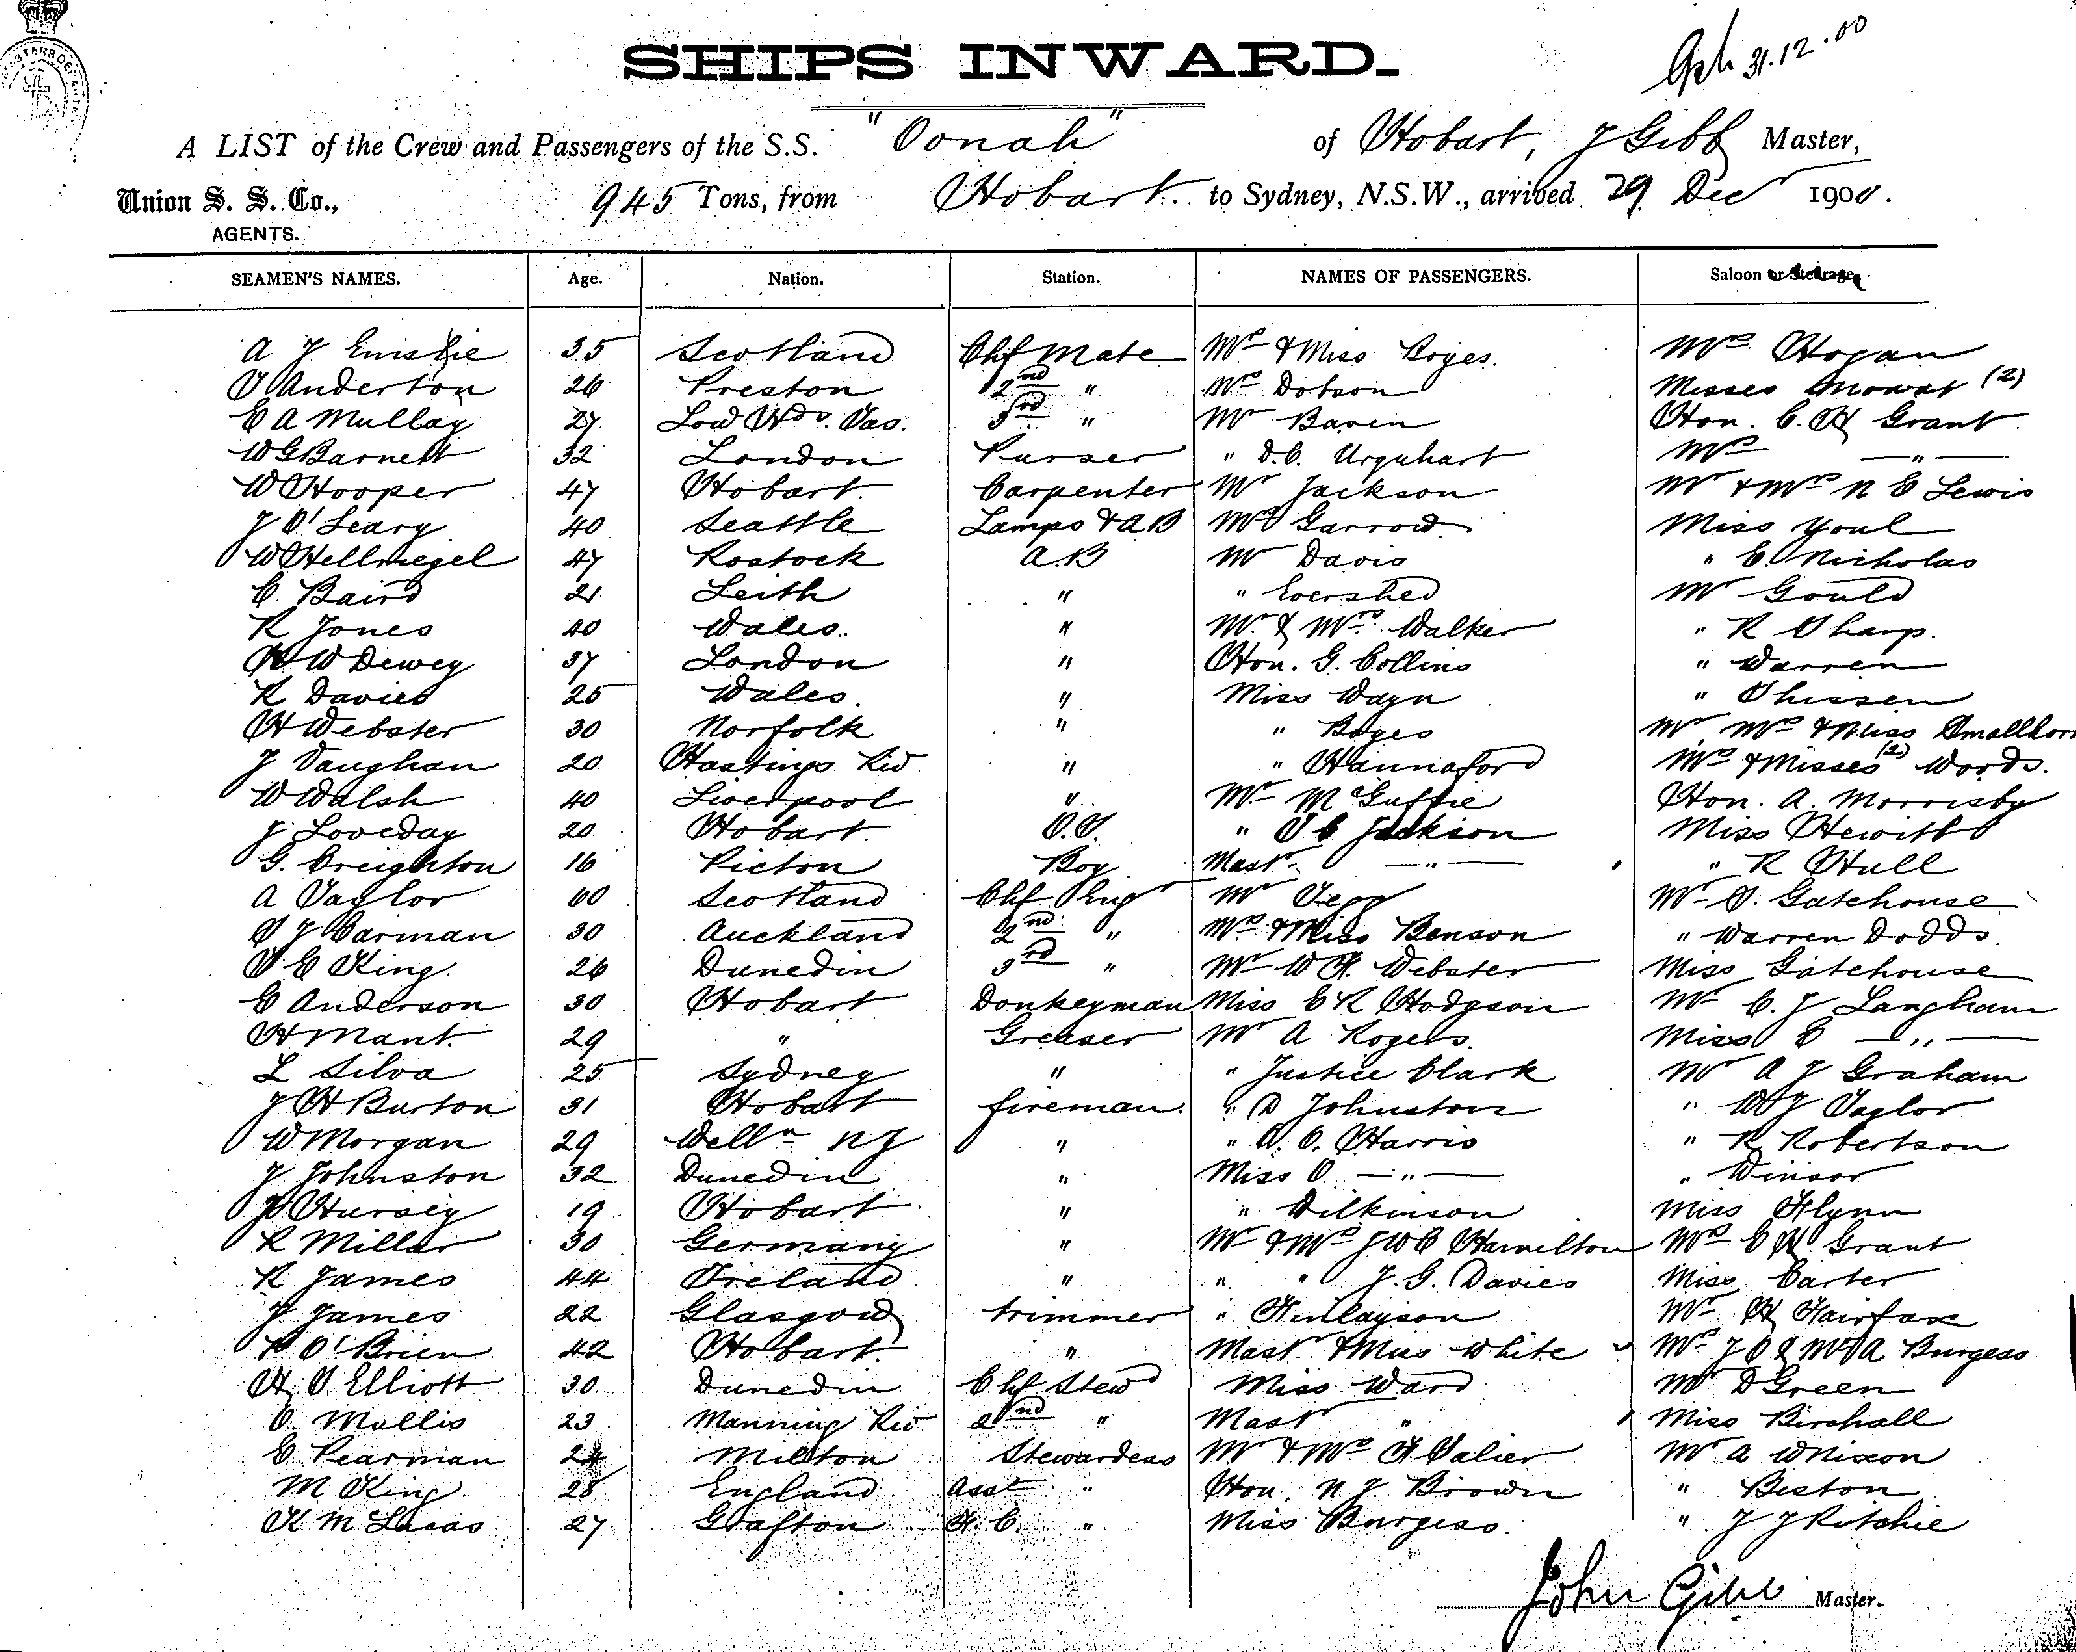 SHIPS INWARD.
31.12.00
A LIST of the Crew and Passengers of the S.S. "Oonah" of Hobart, J Gibb Master,
Union S. S. Co., 945 Tons, from Hobart to Sydney, N.S.W., arrived 29 Dec 1900.
AGENTS.
SEAMEN'S NAMES. Age. Nation. Station. NAMES OF PASSENGERS. Saloon or Steerage
A J Emslie 35 Scotland Chf Mate Mrs & Miss Roges. Mrs Hogan
T Anderton 26 Preston 2nd " Mrs Dobson Misses Mowat (2)
E A Mullay 27 Low Hds. Tas. 3rd " Mr Baren Hon. C. H Grant
W G Barnett 32 London Purser " D. C. Urquhart Mrs —"—
W Hooper 47 Hobart Carpenter Mr Jackson Mr & Mrs N E Lewis
J O'Leary 40 Seattle Lamps & AB Mrs Garrow Miss Youl
W Hellmegel 47 Rostock A.B Mr Davis " E. Nicholas
C. Baird 21 Leith " " Evershed Mr Gould
R Jones 40 Wales. " Mr. & Mrs. Walker " R Sharp.
H W Dewey 37 London " Hon. G. Collins " Warren
R Davies 25 Wales. " Miss Wayn " Thissen
H Webster 30 Norfolk " " Boyes Mr Mrs & Miss Smallhorn
J Vaughan 20 Hastings Riv " " Hannaford Mrs & Misses (2) Woods.
W Walsh 40 Liverpool " Mr McGuffie Hon. A. Morrisby
J Loveday 20 Hobart O.S. " T C Jackson Miss Hewitt
G. Creighton 16 Picton Boy Mast. —"— " R Hull
A Taylor 60 Scotland Chf Eng Mr Tegg Mr S. Gatehouse
S J Carman 30 Auckland 2nd " Mrs & Miss Benson " Warren Dodds.
S E King 26 Dunedin 3rd " Mr W H. Webster Miss Gatehouse
E Anderson 30 Hobart Donkeyman Miss E R Hodgson Mr C. J Langham
H Mant 29 " Greaser Mr A Rogers Miss E —"—
L Silva 25 Sydney " " Justice Clark Mr A J Graham
J H Burton 31 Hobart fireman. " D Johnston " W J Taylor
W Morgan 29 Welln NZ " " A. O. Harris " R Robertson
J Johnston 32 Dunedin " Miss O —"— " Winsor
J Hursey 19 Hobart " " Dilkinson Miss Flynn
R Millar 30 Germany " Mr & Mrs J W C Hamilton Mrs C H Grant
R James 44 Ireland " " " J. G. Davies Miss Carter
J James 22 Glasgow trimmer " Finlayson Mr H Fairfax
P O'Brien 42 Hobart " Mast & Miss White Mrs J O & W A Burgess
H. S Elliott 30 Dunedin Chf Stewd Miss Ward Mr D Green
O. Mallis 23 Manning Riv 2nd " Mast " Miss Birchall
E Pearman 24 Milton Stewardess Mr & Mrs F Salier Mr A W Nixon
M King 28 England Asst " Hon. N J Brown " Beston
K M Lucas 27 Grafton F. C. " Miss Burgess. " J J Ritchie
John Gibb Master.